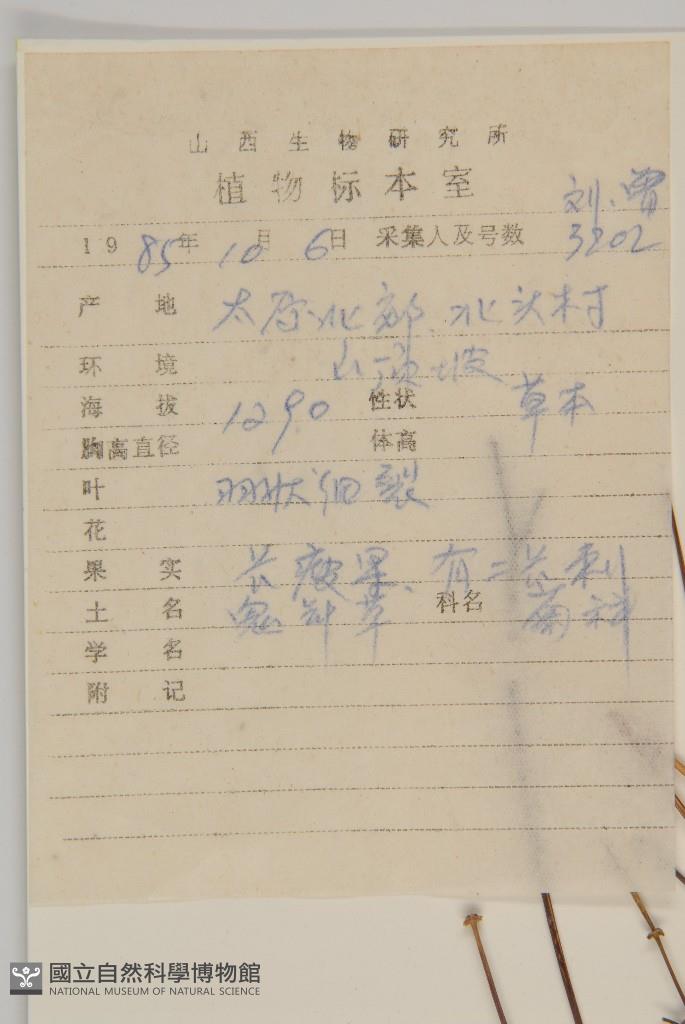 山西生物研究所
植物标本室
刘、曾
1985年10月6日 采集人及号数 3202
产地 太原北郊、北头村
环境 山顶坡
海拔 1290 性状 草本
胸高直径 体高
叶 羽状细裂
花
果实 长瘦果、有二芒刺
土名 鬼针草 科名 菊科
学名
附记
國立自然科學博物館
NATIONAL MUSEUM OF NATURAL SCIENCE